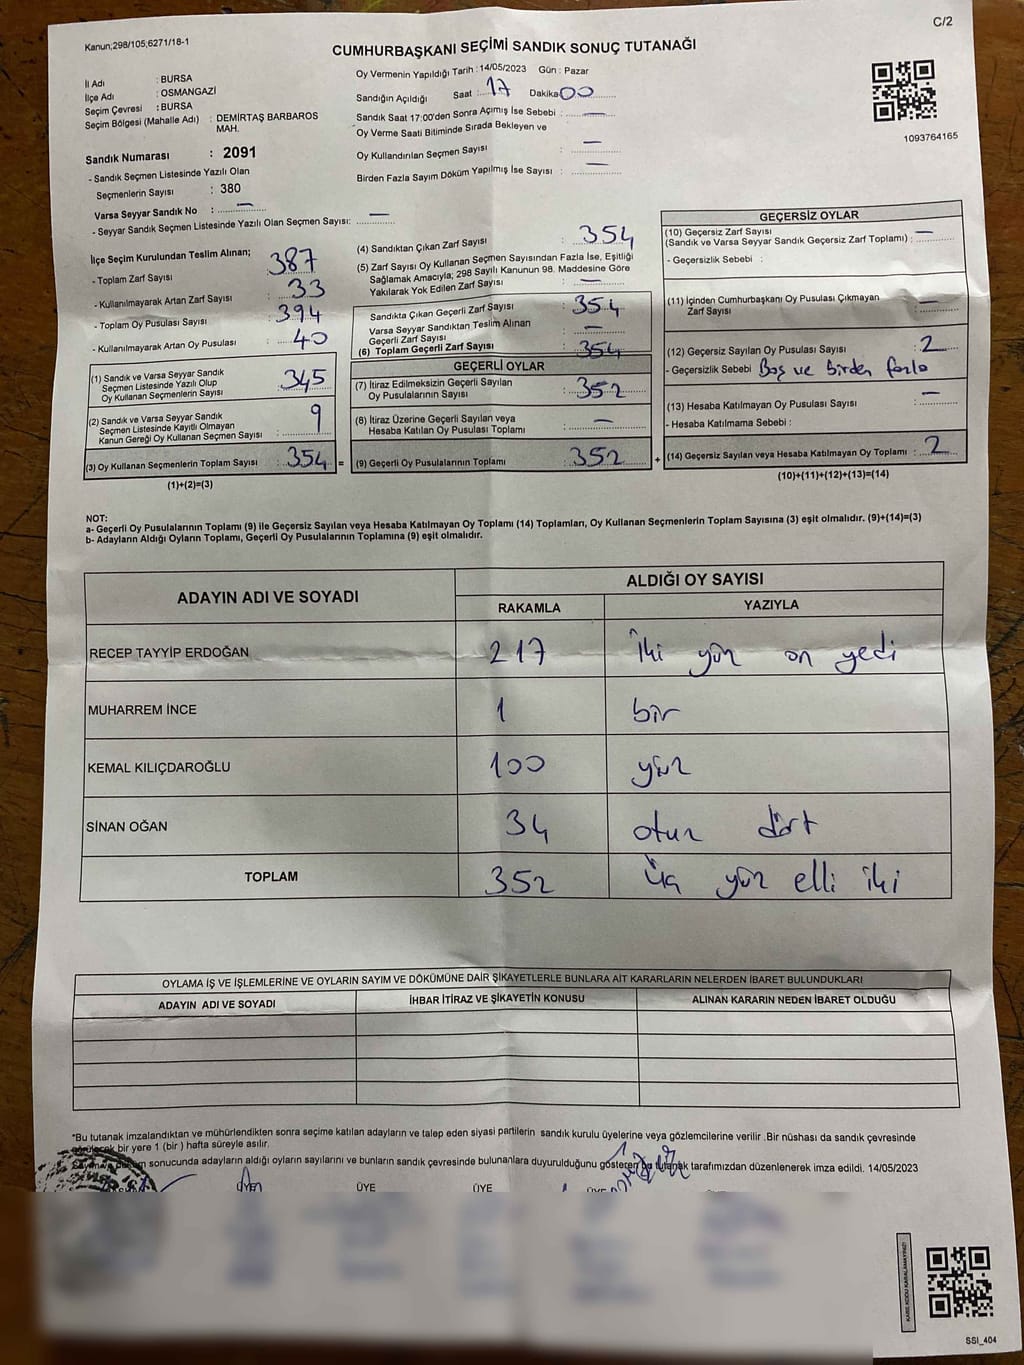 C/2
Kanun;298/105;6271/18-1
CUMHURBAŞKANI SEÇİMİ SANDIK SONUÇ TUTANAĞI
İl Adı : BURSA
İlçe Adı : OSMANGAZİ
Seçim Çevresi : BURSA
Seçim Bölgesi (Mahalle Adı) : DEMİRTAŞ BARBAROS
MAH.
Sandık Numarası : 2091
- Sandık Seçmen Listesinde Yazılı Olan
Seçmenlerin Sayısı : 380
Varsa Seyyar Sandık No : —
- Seyyar Sandık Seçmen Listesinde Yazılı Olan Seçmen Sayısı: —
Oy Vermenin Yapıldığı Tarih : 14/05/2023 Gün : Pazar
Sandığın Açıldığı Saat : 17 Dakika 00
Sandık Saat 17:00'den Sonra Açımış İse Sebebi : —
Oy Verme Saati Bitiminde Sırada Bekleyen ve
Oy Kullandırılan Seçmen Sayısı : —
Birden Fazla Sayım Döküm Yapılmış İse Sayısı : —
1093764165
İlçe Seçim Kurulundan Teslim Alınan;
- Toplam Zarf Sayısı : 387
- Kullanılmayarak Artan Zarf Sayısı : 33
- Toplam Oy Pusulası Sayısı : 394
- Kullanılmayarak Artan Oy Pusulası : 40
(1) Sandık ve Varsa Seyyar Sandık
Seçmen Listesinde Yazılı Olup
Oy Kullanan Seçmenlerin Sayısı : 345
(2) Sandık ve Varsa Seyyar Sandık
Seçmen Listesinde Kayıtlı Olmayan
Kanun Gereği Oy Kullanan Seçmen Sayısı : 9
(3) Oy Kullanan Seçmenlerin Toplam Sayısı : 354 =
(1)+(2)=(3)
(4) Sandıktan Çıkan Zarf Sayısı : 354
(5) Zarf Sayısı Oy Kullanan Seçmen Sayısından Fazla İse, Eşitliği
Sağlamak Amacıyla; 298 Sayılı Kanunun 98. Maddesine Göre
Yakılarak Yok Edilen Zarf Sayısı : —
Sandıkta Çıkan Geçerli Zarf Sayısı : 354
Varsa Seyyar Sandıktan Teslim Alınan
Geçerli Zarf Sayısı : —
(6) Toplam Geçerli Zarf Sayısı : 354
GEÇERLİ OYLAR
(7) İtiraz Edilmeksizin Geçerli Sayılan
Oy Pusulalarının Sayısı : 352
(8) İtiraz Üzerine Geçerli Sayılan veya
Hesaba Katılan Oy Pusulası Toplamı : —
(9) Geçerli Oy Pusulalarının Toplamı : 352 +
GEÇERSİZ OYLAR
(10) Geçersiz Zarf Sayısı
(Sandık ve Varsa Seyyar Sandık Geçersiz Zarf Toplamı) : —
- Geçersizlik Sebebi :
(11) İçinden Cumhurbaşkanı Oy Pusulası Çıkmayan
Zarf Sayısı : —
(12) Geçersiz Sayılan Oy Pusulası Sayısı : 2
- Geçersizlik Sebebi Boş ve birden fazla
(13) Hesaba Katılmayan Oy Pusulası Sayısı : —
- Hesaba Katılmama Sebebi :
(14) Geçersiz Sayılan veya Hesaba Katılmayan Oy Toplamı : 2
(10)+(11)+(12)+(13)=(14)
NOT:
a- Geçerli Oy Pusulalarının Toplamı (9) ile Geçersiz Sayılan veya Hesaba Katılmayan Oy Toplamı (14) Toplamları, Oy Kullanan Seçmenlerin Toplam Sayısına (3) eşit olmalıdır. (9)+(14)=(3)
b- Adayların Aldığı Oyların Toplamı, Geçerli Oy Pusulalarının Toplamına (9) eşit olmalıdır.
ADAYIN ADI VE SOYADI ALDIĞI OY SAYISI
RAKAMLA YAZIYLA
RECEP TAYYİP ERDOĞAN 217 İki yüz on yedi
MUHARREM İNCE 1 bir
KEMAL KILIÇDAROĞLU 100 yüz
SİNAN OĞAN 34 otuz dört
TOPLAM 352 Üç yüz elli iki
OYLAMA İŞ VE İŞLEMLERİNE VE OYLARIN SAYIM VE DÖKÜMÜNE DAİR ŞİKAYETLERLE BUNLARA AİT KARARLARIN NELERDEN İBARET BULUNDUKLARI
ADAYIN ADI VE SOYADI İHBAR İTİRAZ VE ŞİKAYETİN KONUSU ALINAN KARARIN NEDEN İBARET OLDUĞU
*Bu tutanak imzalandıktan ve mühürlendikten sonra seçime katılan adayların ve talep eden siyasi partilerin sandık kurulu üyelerine veya gözlemcilerine verilir .Bir nüshası da sandık çevresinde
görülecek bir yere 1 (bir ) hafta süreyle asılır.
sonucunda adayların aldığı oyların sayılarını ve bunların sandık çevresinde bulunanlara duyurulduğunu gösteren bu tutanak tarafımızdan düzenlenerek imza edildi. 14/05/2023
ÜYE ÜYE ÜYE
KARE KODU KARALAMAYINIZ!
SSI_404